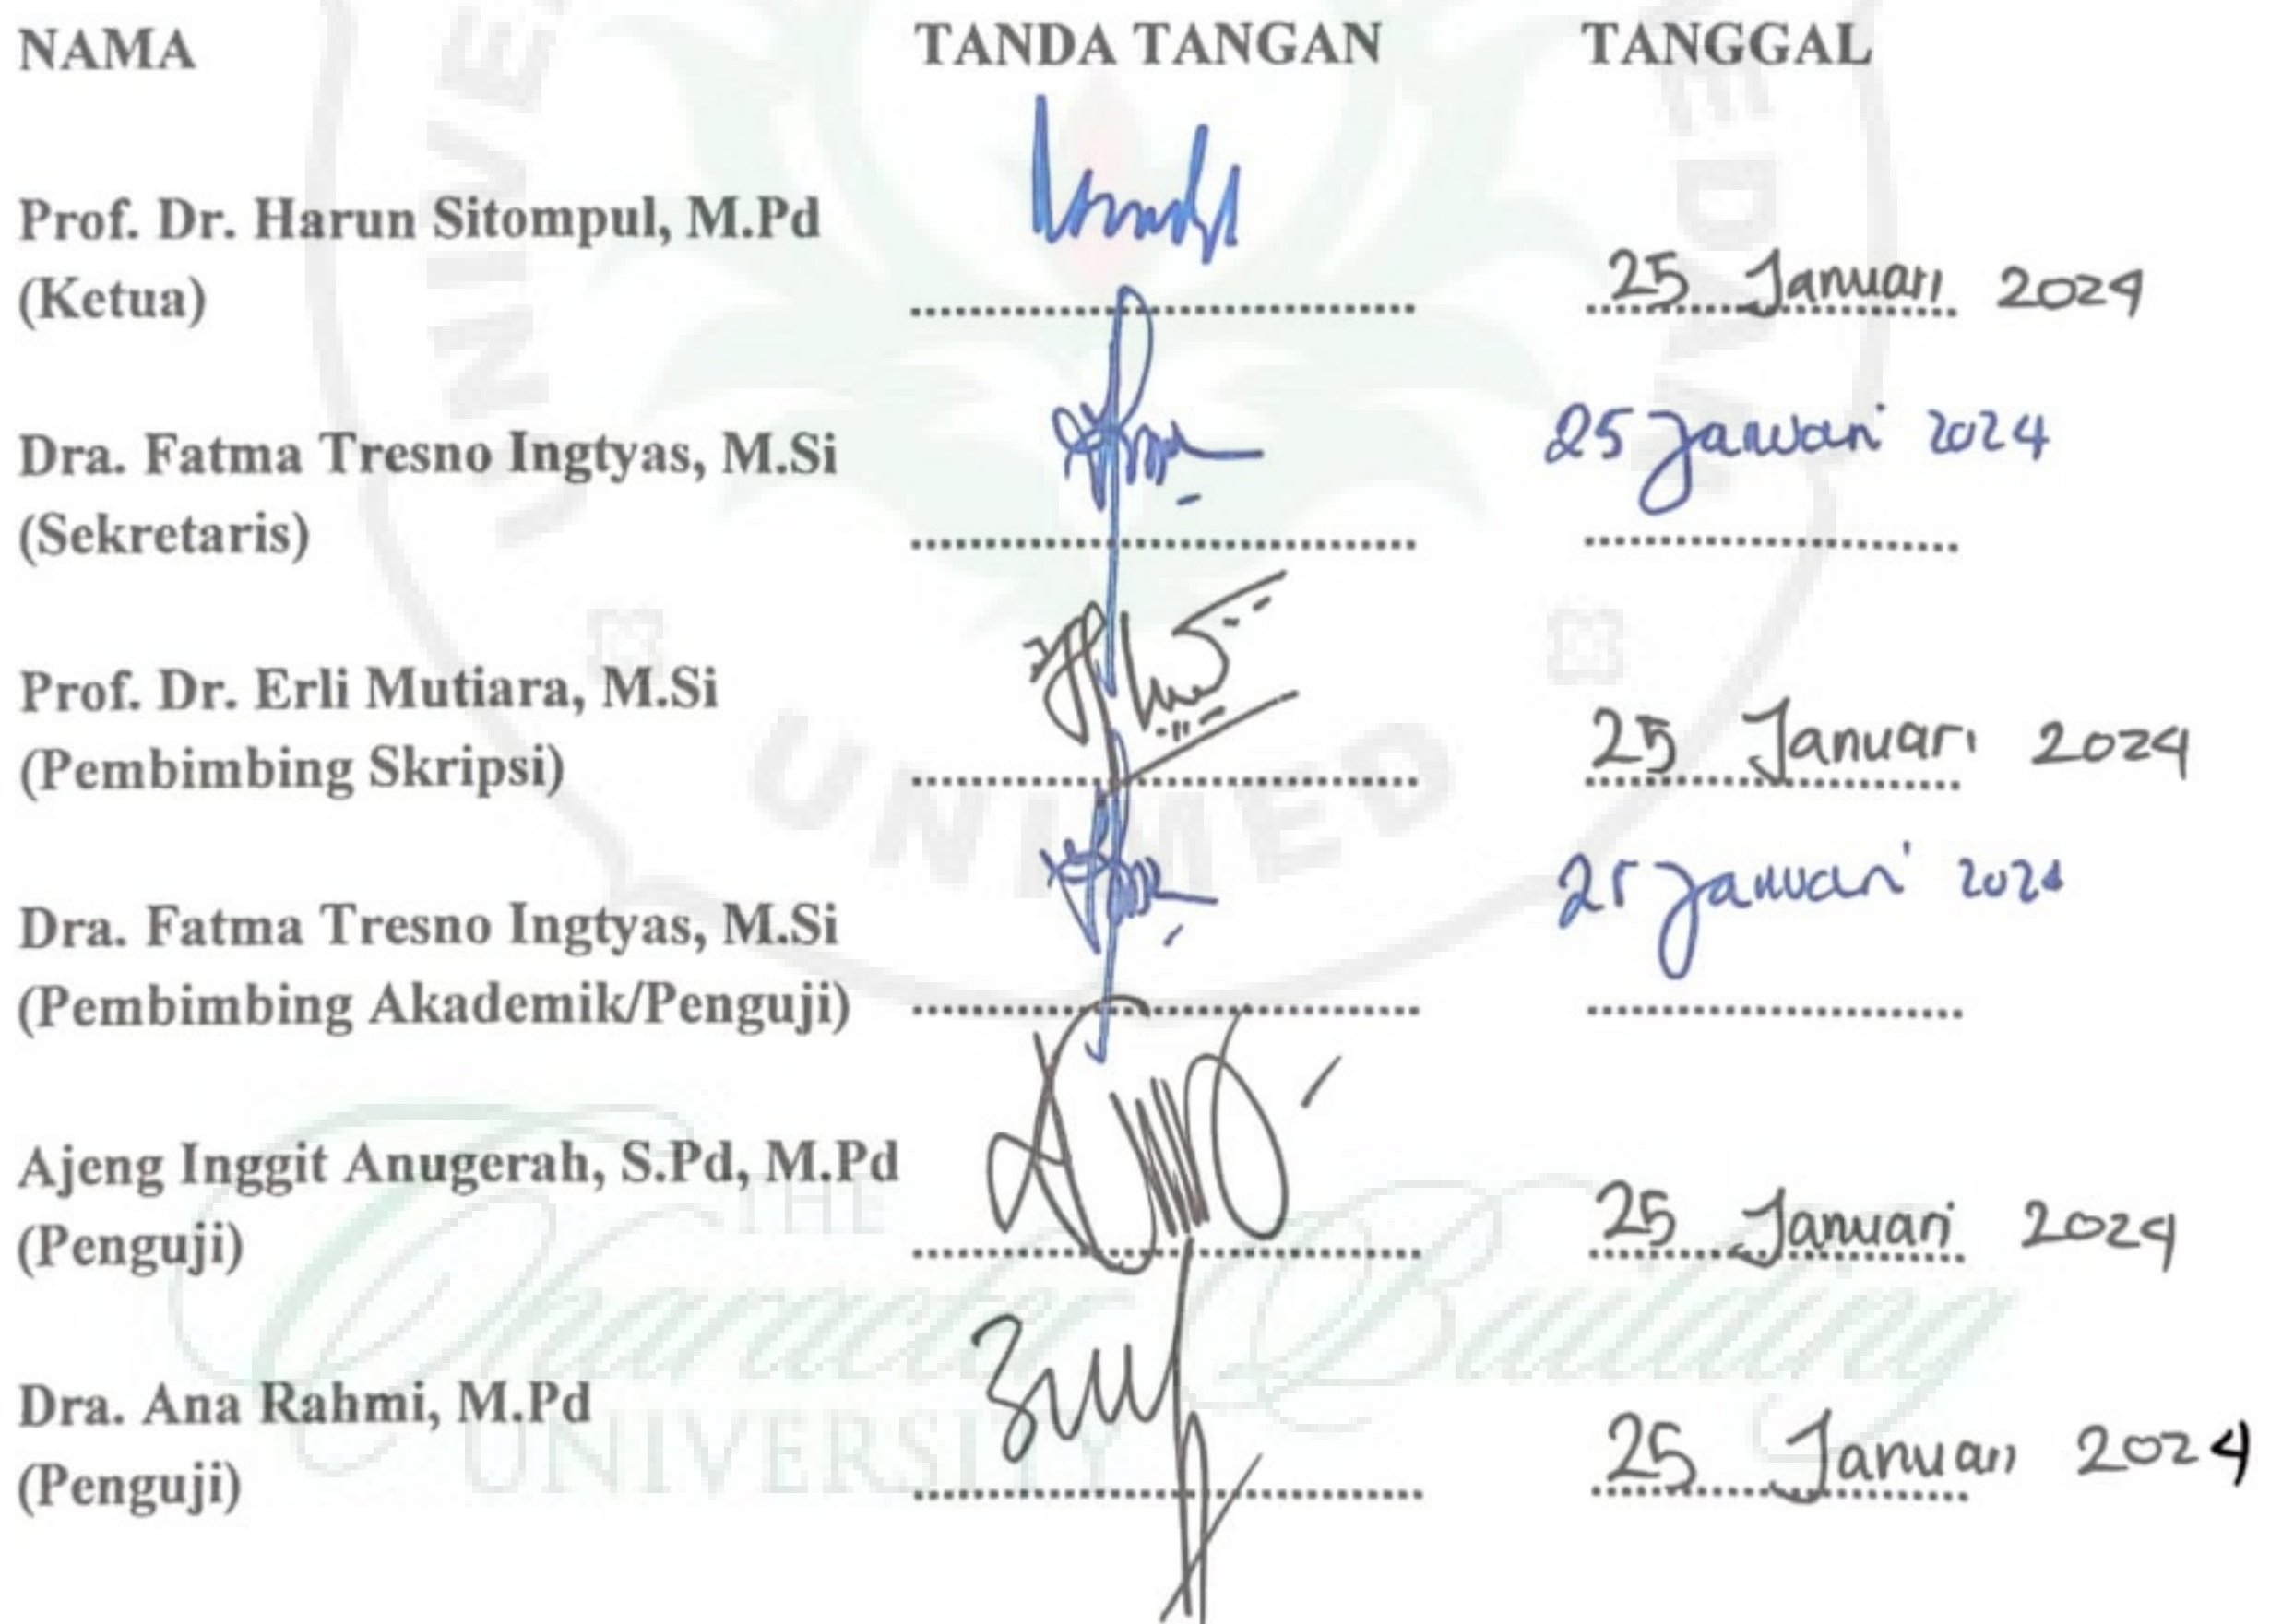 NAMA TANDA TANGAN TANGGAL
Prof. Dr. Harun Sitompul, M.Pd
(Ketua) 25 Januari 2024
Dra. Fatma Tresno Ingtyas, M.Si 25 Januari 2024
(Sekretaris)
Prof. Dr. Erli Mutiara, M.Si
(Pembimbing Skripsi) 25 Januari 2024
Dra. Fatma Tresno Ingtyas, M.Si 25 Januari 2024
(Pembimbing Akademik/Penguji)
Ajeng Inggit Anugerah, S.Pd, M.Pd
(Penguji) 25 Januari 2024
Dra. Ana Rahmi, M.Pd
(Penguji) 25 Januari 2024
UNIMED
THE
Character Building
UNIVERSITY